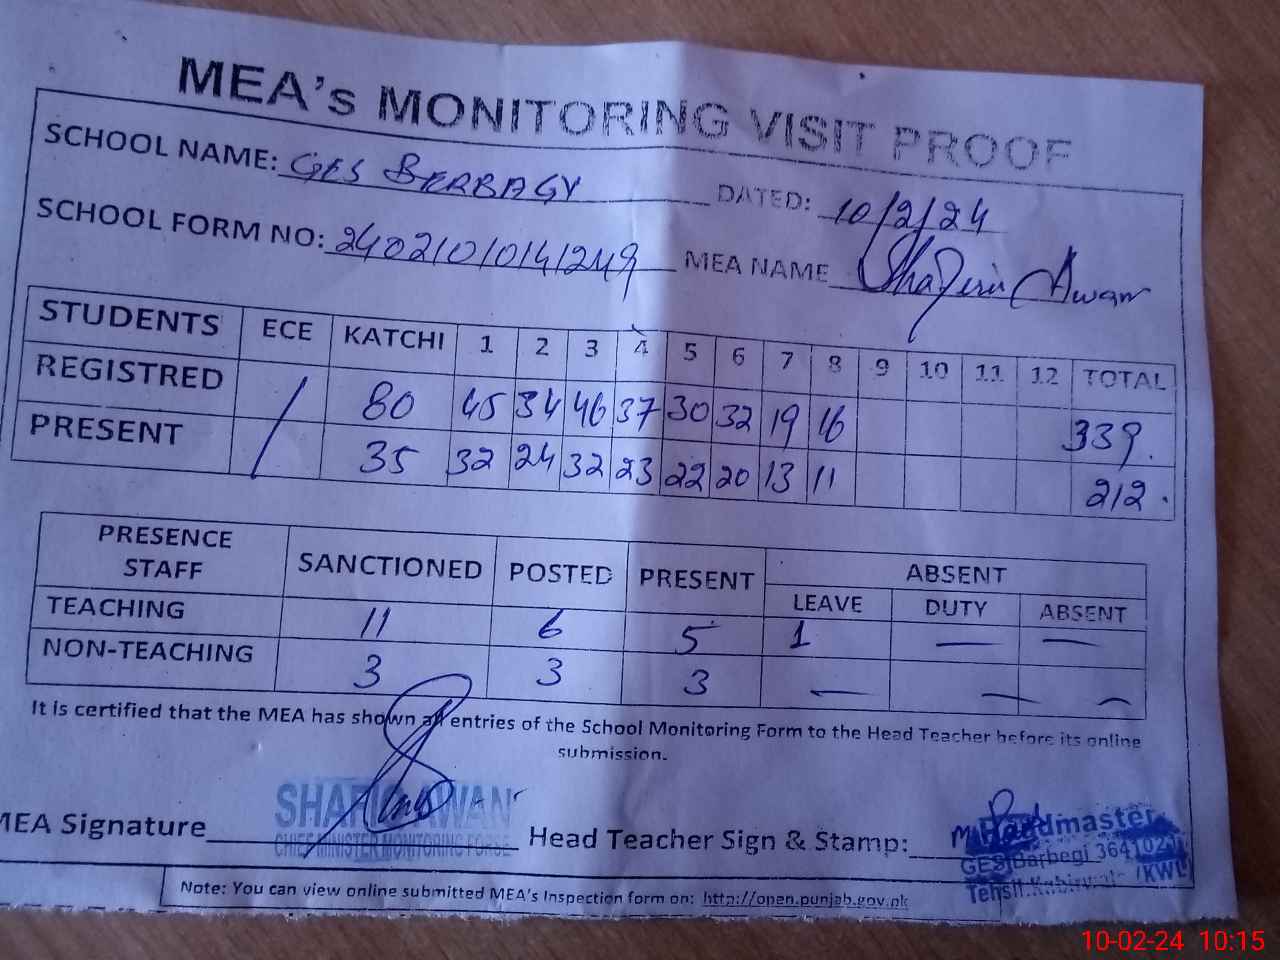 MEA's MONITORING VISIT PROOF
SCHOOL NAME: GES BERBAGY DATED: 10/2/24
SCHOOL FORM NO: 24021010141249 MEA NAME Shafiq Awan
STUDENTS ECE KATCHI 1 2 3 4 5 6 7 8 9 10 11 12 TOTAL
REGISTRED / 80 45 34 46 37 30 32 19 16 339.
PRESENT 35 32 24 32 23 22 20 13 11 212.
PRESENCE STAFF SANCTIONED POSTED PRESENT ABSENT
LEAVE DUTY ABSENT
TEACHING 11 6 5 1 — —
NON-TEACHING 3 3 3 — — —
It is certified that the MEA has shown all entries of the School Monitoring Form to the Head Teacher before its online
submission.
MEA Signature Head Teacher Sign & Stamp:
SHAFIQ AWAN
CHIEF MINISTER MONITORING FORSE
Headmaster
GES Barbegi 364102
Tehsil. (KWL)
Note: You can view online submitted MEA's Inspection form on: http://open.punjab.gov.pk
10-02-24 10:15